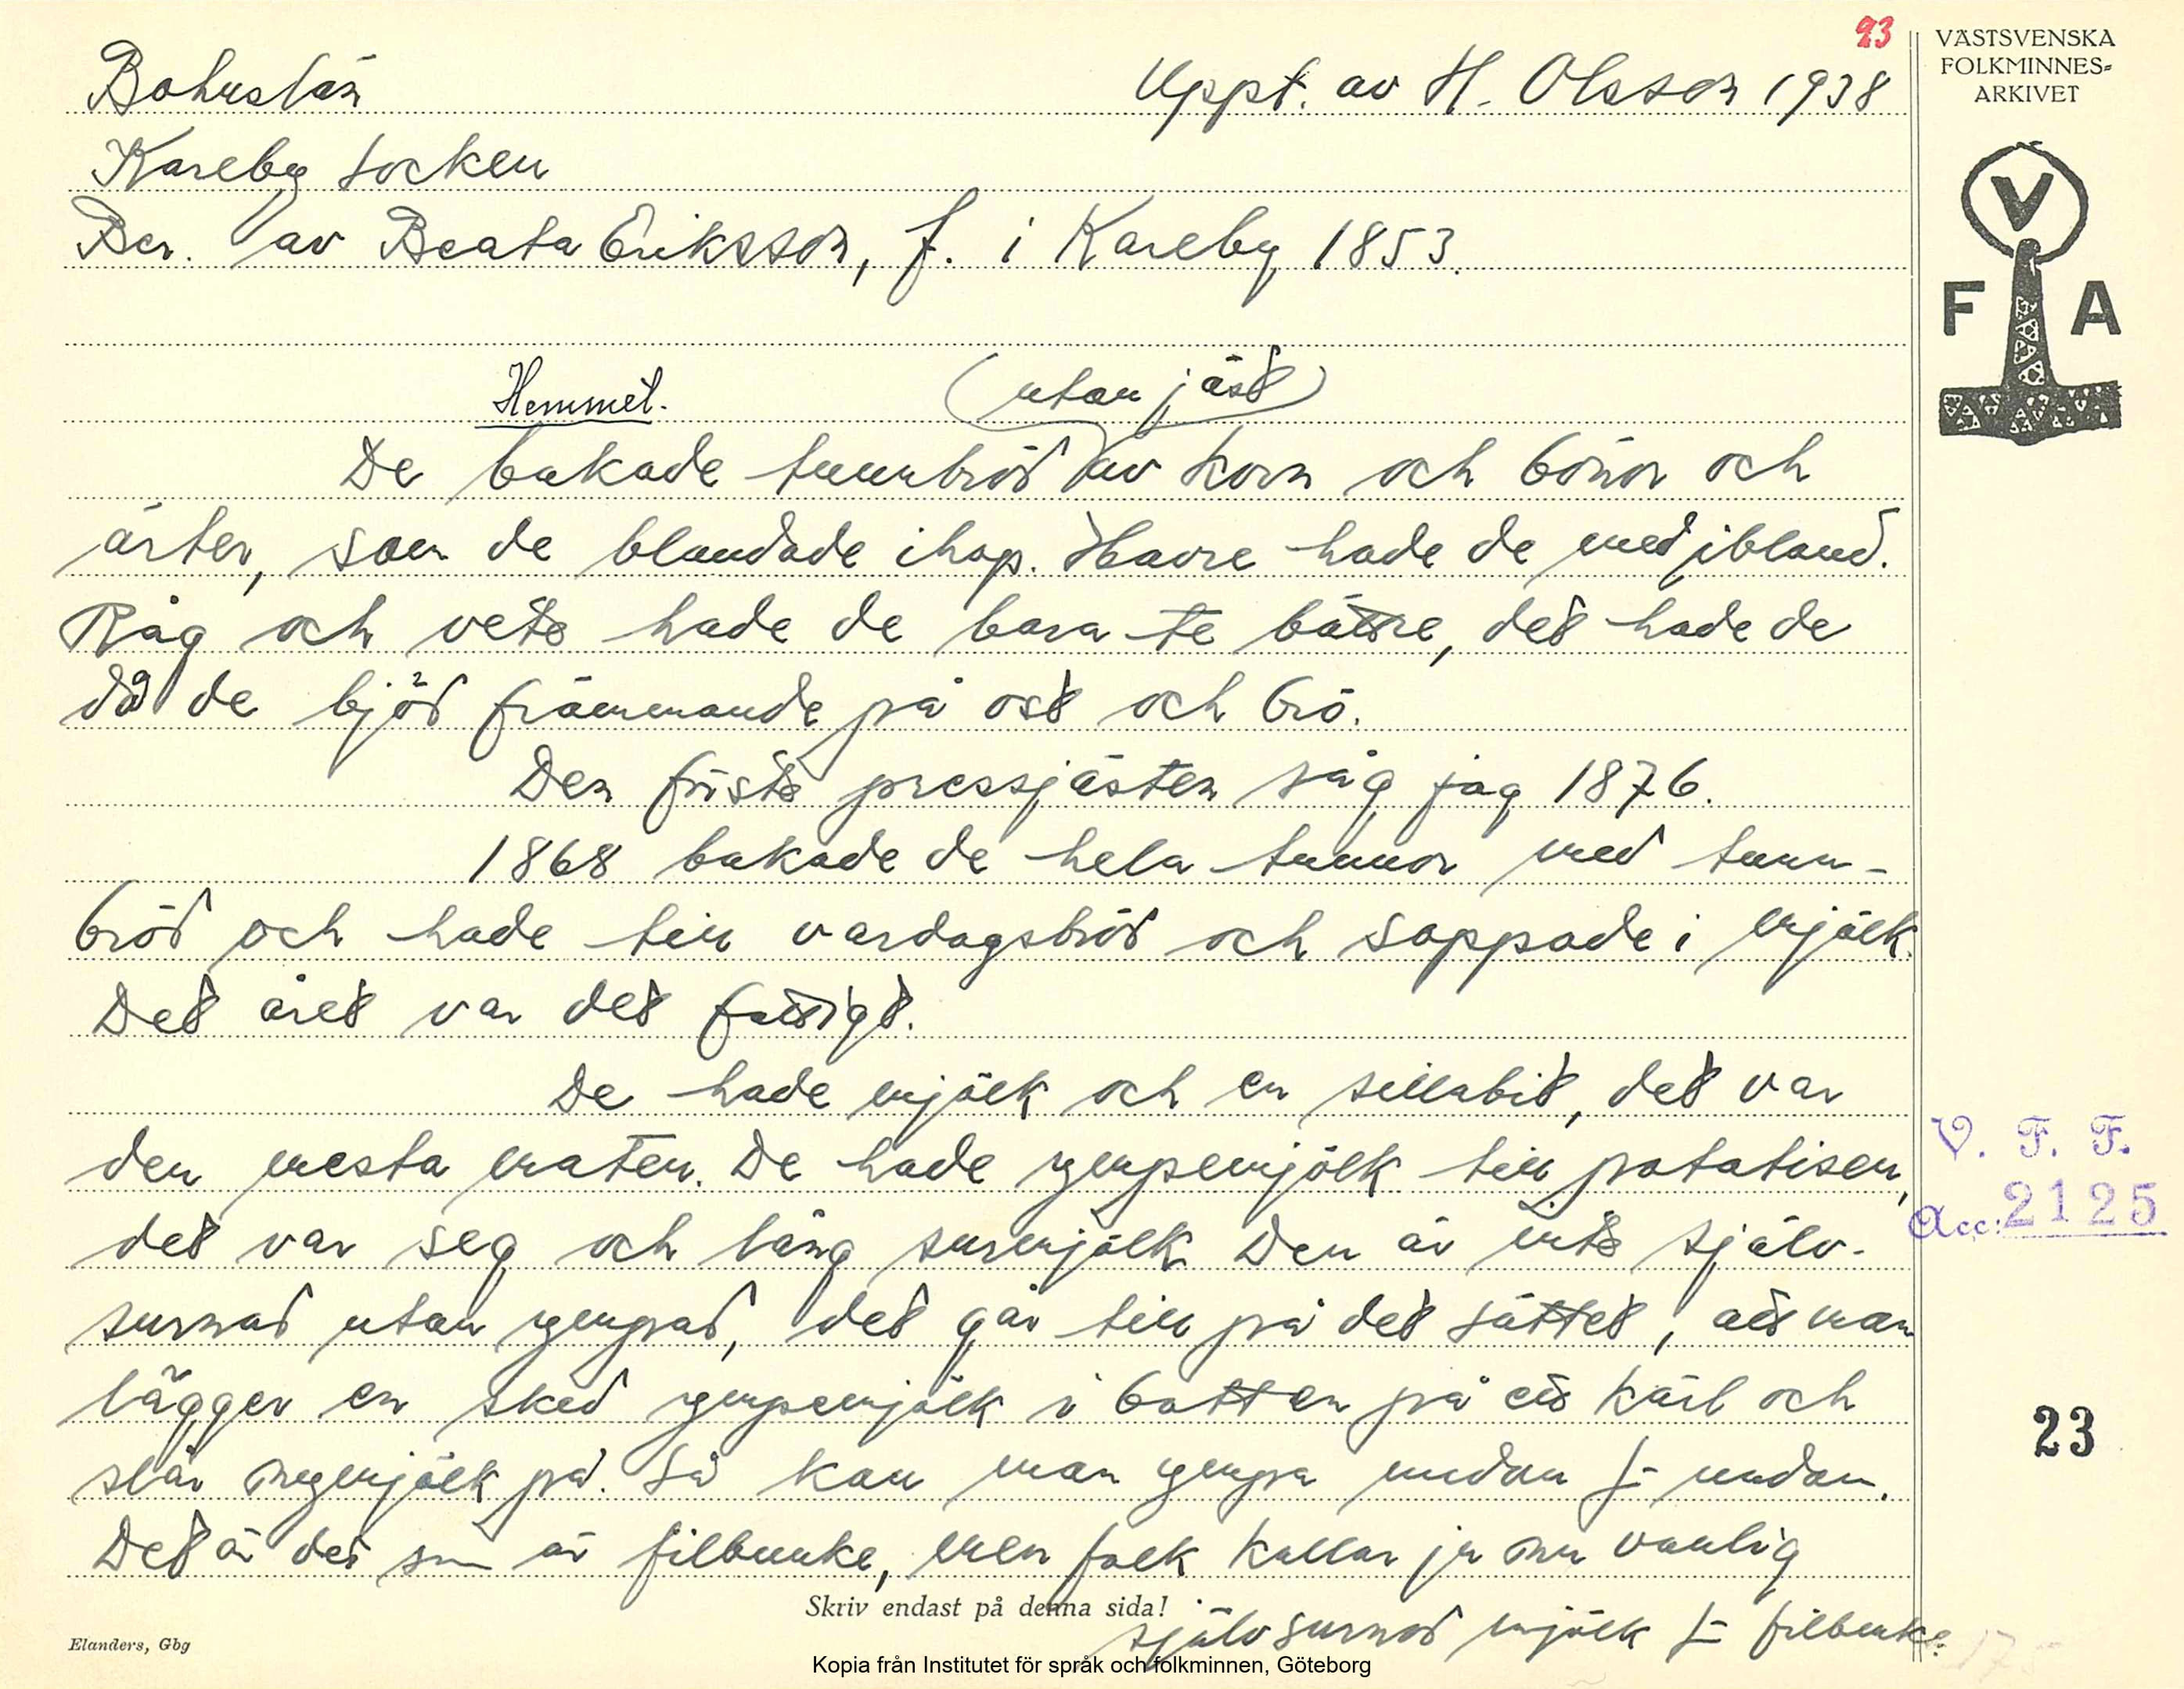 93
VÄSTSVENSKA
FOLKMINNES-
ARKIVET
V
F A
Bohuslän
Uppt. av H. Olsson 1938
Kareby socken
Ber. av Beata Eriksson, f. i Kareby 1853.
Hemmet.
(utan jäst)
De bakade tunnbröd av korn och bönor och
ärter, som de blandade ihop. Havre hade de med ibland.
Råg och vete hade de bara te bättre, det hade de
då de bjöd främmande på ost och brö.
Den första pressjästen såg jag 1876.
1868 bakade de hela tunnor med tunn-
bröd och hade till vardagsbröd och soppade i mjölk.
Det året var det fattigt.
De hade mjölk och en sillabit, det var
den mesta maten. De hade ympemjölk till potatisen,
det var seg och lång surmjölk. Den är inte själv-
surnad utan ympad, det går till på det sättet, att man
lägger en sked ympemjölk i botten på ett kärl och
slår nymjölk på. Så kan man ympa undan f- undan.
Det är det som är filbunke, men folk kallar ju nu vanlig
självsurnad mjölk f- filbunke.
V. F. F.
Acc: 2125
23
Skriv endast på denna sida!
Elanders, Gbg
Kopia från Institutet för språk och folkminnen, Göteborg